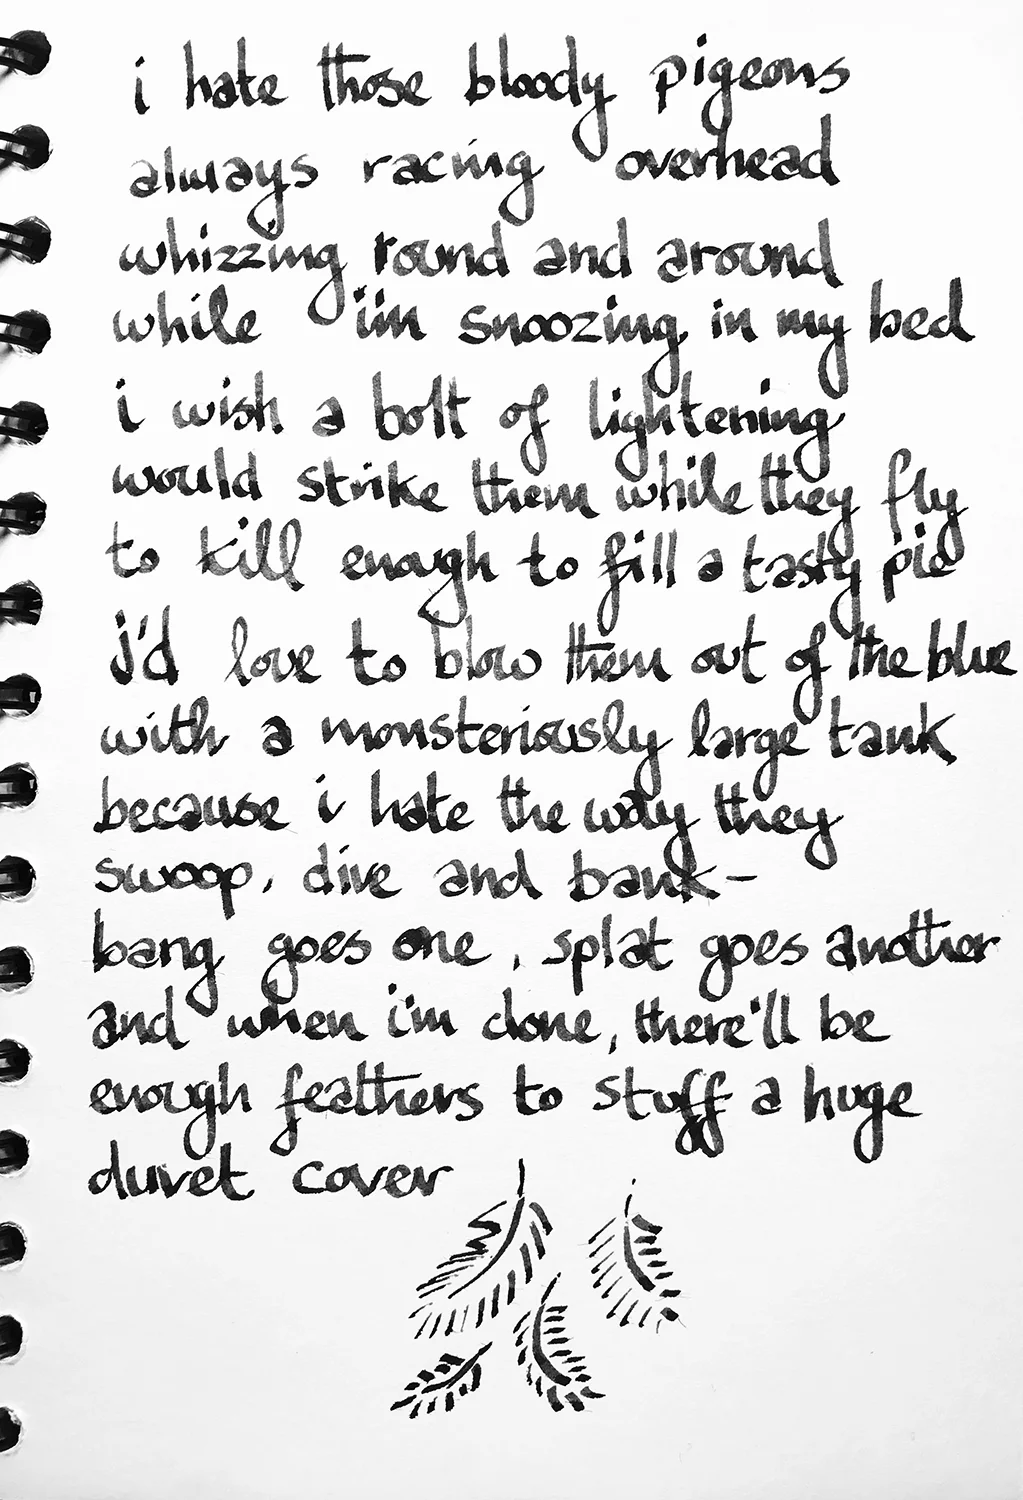 i hate those bloody pigeons
always racing overhead
whizzing round and around
while i'm snoozing in my bed
i wish a bolt of lightening
would strike them while they fly
to kill enough to fill a tasty pie
i'd love to blow them out of the blue
with a monsteriously large tank
because i hate the way they
swoop, dive and bank-
bang goes one, splat goes another
and when i'm done, there'll be
enough feathers to stuff a huge
duvet cover